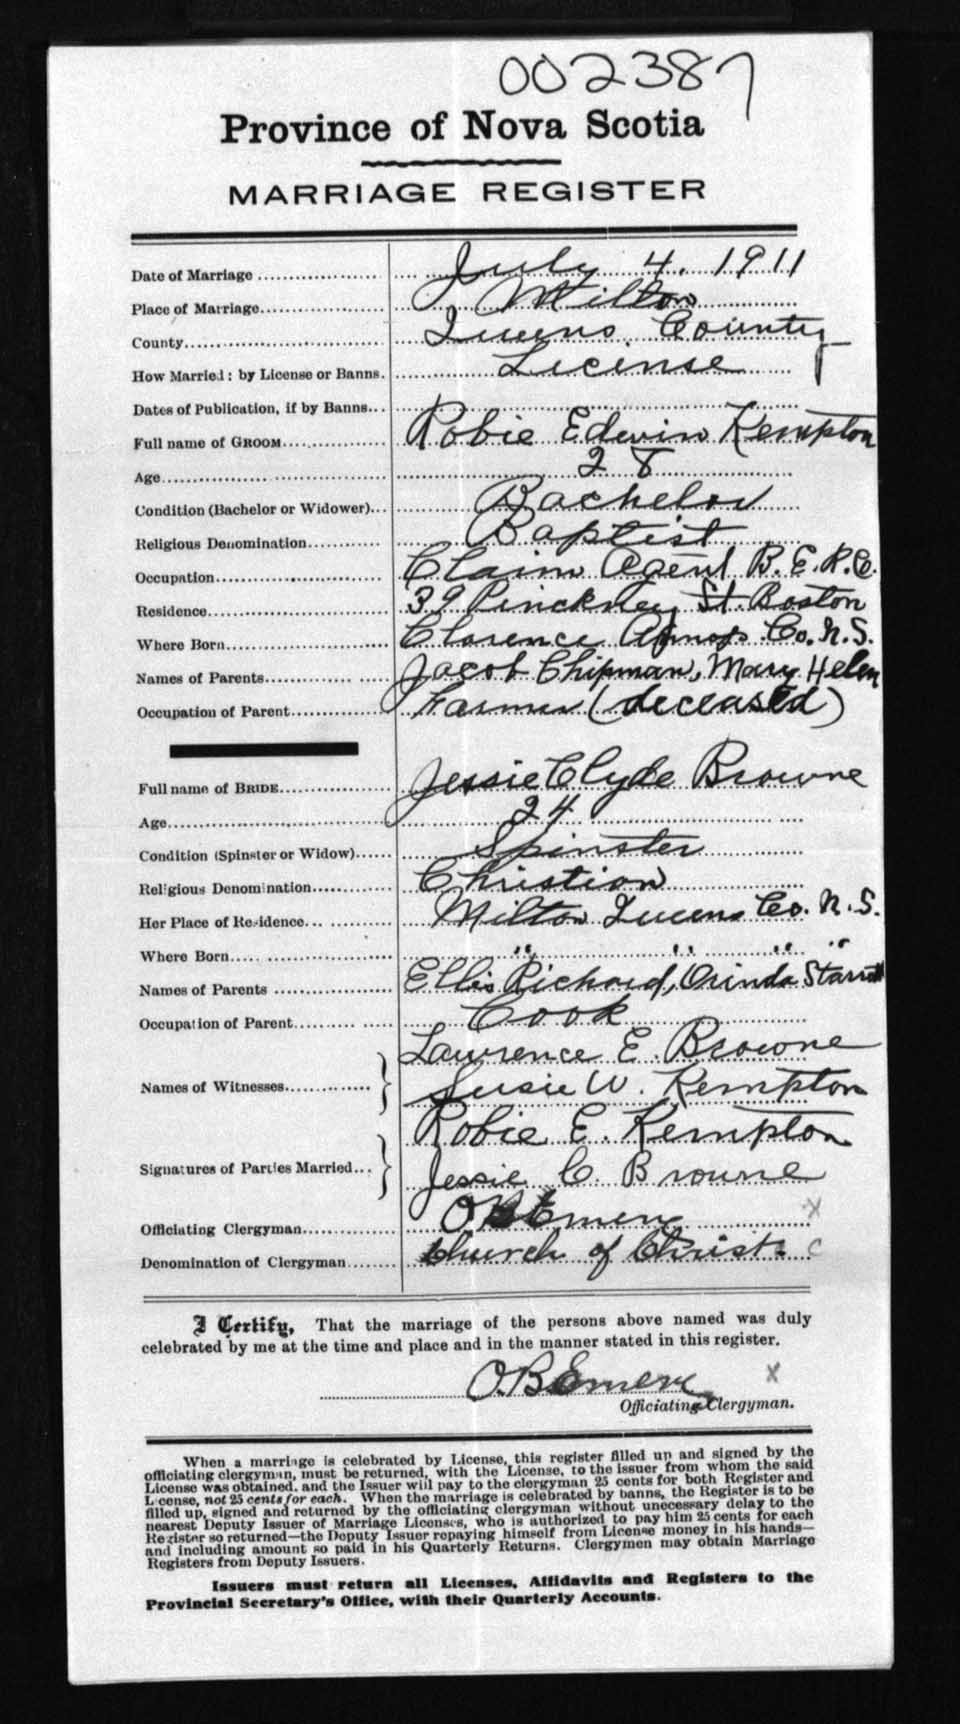 002387
Province of Nova Scotia
MARRIAGE REGISTER
Date of Marriage July 4. 1911
Place of Marriage Milton
County Queens County
How Married: by License or Banns. License
Dates of Publication, if by Banns
Full name of GROOM Robie Edwin Kempton
Age 28
Condition (Bachelor or Widower) Bachelor
Religious Denomination Baptist
Occupation Claim Agent B.E.R.Co.
Residence 39 Pinckney St. Boston
Where Born Clarence Annap. Co. N.S.
Names of Parents Jacob Chipman, Mary Helen
Occupation of Parent Farmer (deceased)
Full name of BRIDE Jessie Clyde Browne
Age 24
Condition (Spinster or Widow) Spinster
Religious Denomination Christian
Her Place of Residence Milton Queens Co. N.S.
Where Born " " " "
Names of Parents Ellis Richard, Orinda Starratt
Occupation of Parent Cook
Lawrence E. Browne
Names of Witnesses
Susie W. Kempton
Robie E. Kempton
Signatures of Parties Married
Jessie C. Browne
Officiating Clergyman O B Emery X
Denomination of Clergyman Church of Christ C
I Certify, That the marriage of the persons above named was duly
celebrated by me at the time and place and in the manner stated in this register.
O. B Emery X
Officiating Clergyman.
When a marriage is celebrated by License, this register filled up and signed by the
officiating clergyman, must be returned, with the License, to the issuer from whom the said
License was obtained, and the Issuer will pay to the clergyman 25 cents for both Register and
License, not 25 cents for each. When the marriage is celebrated by banns, the Register is to be
filled up, signed and returned by the officiating clergyman without unnecessary delay to the
nearest Deputy Issuer of Marriage Licenses, who is authorized to pay him 25 cents for each
Register so returned—the Deputy Issuer repaying himself from License money in his hands—
and including amount so paid in his Quarterly Returns. Clergymen may obtain Marriage
Registers from Deputy Issuers.
Issuers must return all Licenses, Affidavits and Registers to the
Provincial Secretary's Office, with their Quarterly Accounts.